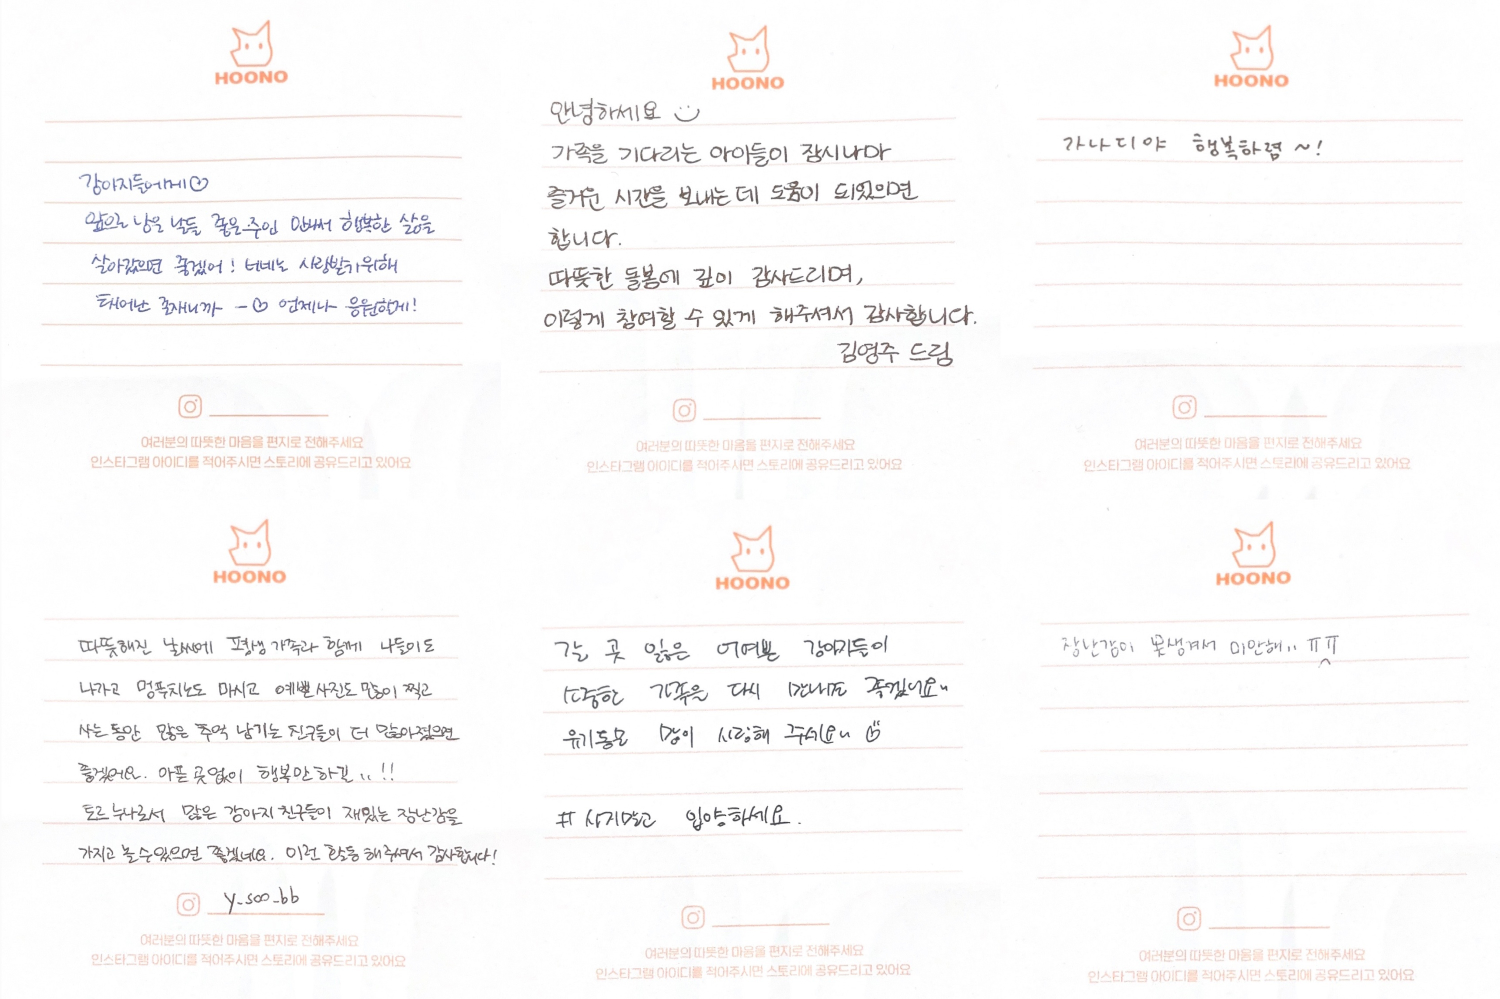 HOONO
강아지들에게
앞으로 남은 날들 좋은 주인 만나서 행복한 삶을
살아갔으면 좋겠어! 너네는 사랑받기위해
태어난 존재니까 ~ 언제나 응원할게!
여러분의 따뜻한 마음을 편지로 전해주세요
인스타그램 아이디를 적어주시면 스토리에 공유드리고 있어요
HOONO
안녕하세요
가족을 기다리는 아이들이 잠시나마
즐거운 시간을 보내는데 도움이 되었으면
합니다.
따뜻한 돌봄에 깊이 감사드리며,
이렇게 참여할 수 있게 해주셔서 감사합니다.
김영주 드림
여러분의 따뜻한 마음을 편지로 전해주세요
인스타그램 아이디를 적어주시면 스토리에 공유드리고 있어요
HOONO
가나디야 행복하렴 ~!
여러분의 따뜻한 마음을 편지로 전해주세요
인스타그램 아이디를 적어주시면 스토리에 공유드리고 있어요
HOONO
따뜻해진 날씨에 평생 가족과 함께 나들이도
나가고 멍푸치노도 마시고 예쁜 사진도 많이 찍고
사는 동안 많은 추억 남기는 친구들이 더 많아졌으면
좋겠어요. 아픈 곳 없이 행복만 하길..!!
토르 누나로서 많은 강아지 친구들이 재밌는 장난감을
가지고 놀 수 있으면 좋겠네요. 이런 활동 해주셔서 감사합니다!
y_soo_bb
여러분의 따뜻한 마음을 편지로 전해주세요
인스타그램 아이디를 적어주시면 스토리에 공유드리고 있어요
HOONO
갈 곳 잃은 어여쁜 강아지들이
소중한 가족을 다시 만나도 좋겠네요~
유기동물 많이 사랑해 주세요~
# 사지말고 입양하세요.
여러분의 따뜻한 마음을 편지로 전해주세요
인스타그램 아이디를 적어주시면 스토리에 공유드리고 있어요
HOONO
장난감이 못생겨서 미안해.. ㅠㅠ
여러분의 따뜻한 마음을 편지로 전해주세요
인스타그램 아이디를 적어주시면 스토리에 공유드리고 있어요